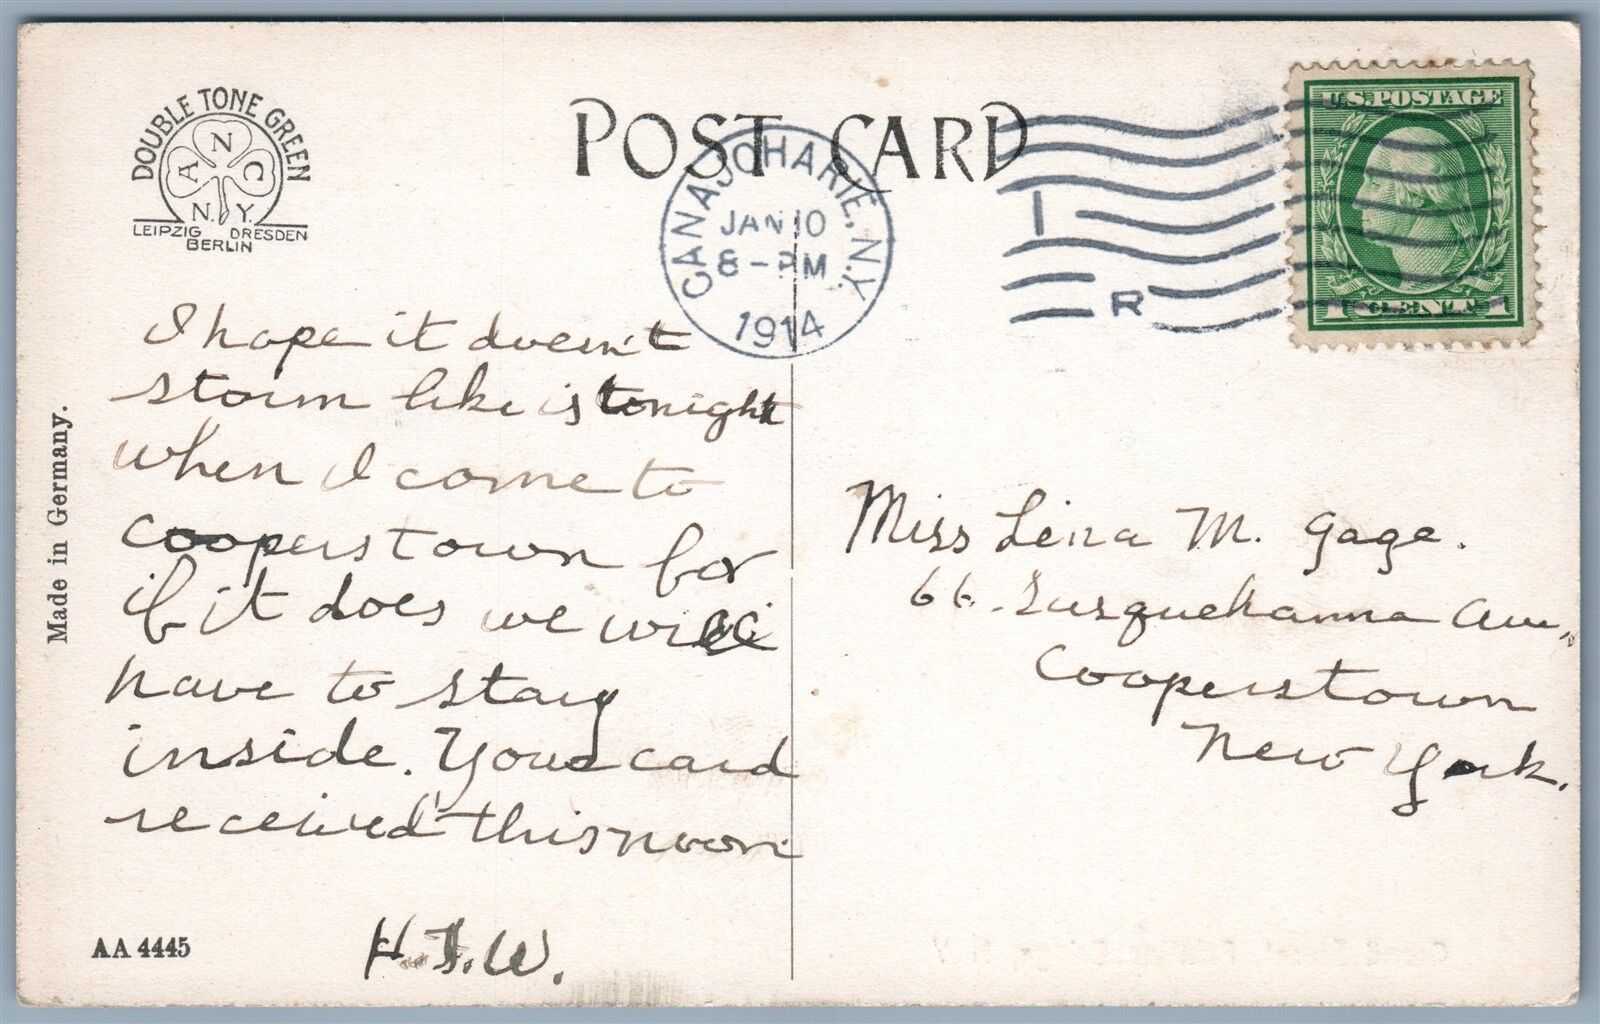 DOUBLE TONE GREEN
A N C
N. Y.
LEIPZIG DRESDEN
BERLIN
POST CARD
CANAJOHARIE, N.Y.
JAN 10
8-PM
1914
I
R
U.S. POSTAGE
1 CENT 1
I hope it doesn't
storm like is tonight
when I come to
Cooperstown for
if it does we will
have to stay
inside. Your card
received this noon
H.F.W.
Miss Lena M. Gage.
66. Susquehanna Ave.,
Cooperstown
New York.
Made in Germany.
AA 4445